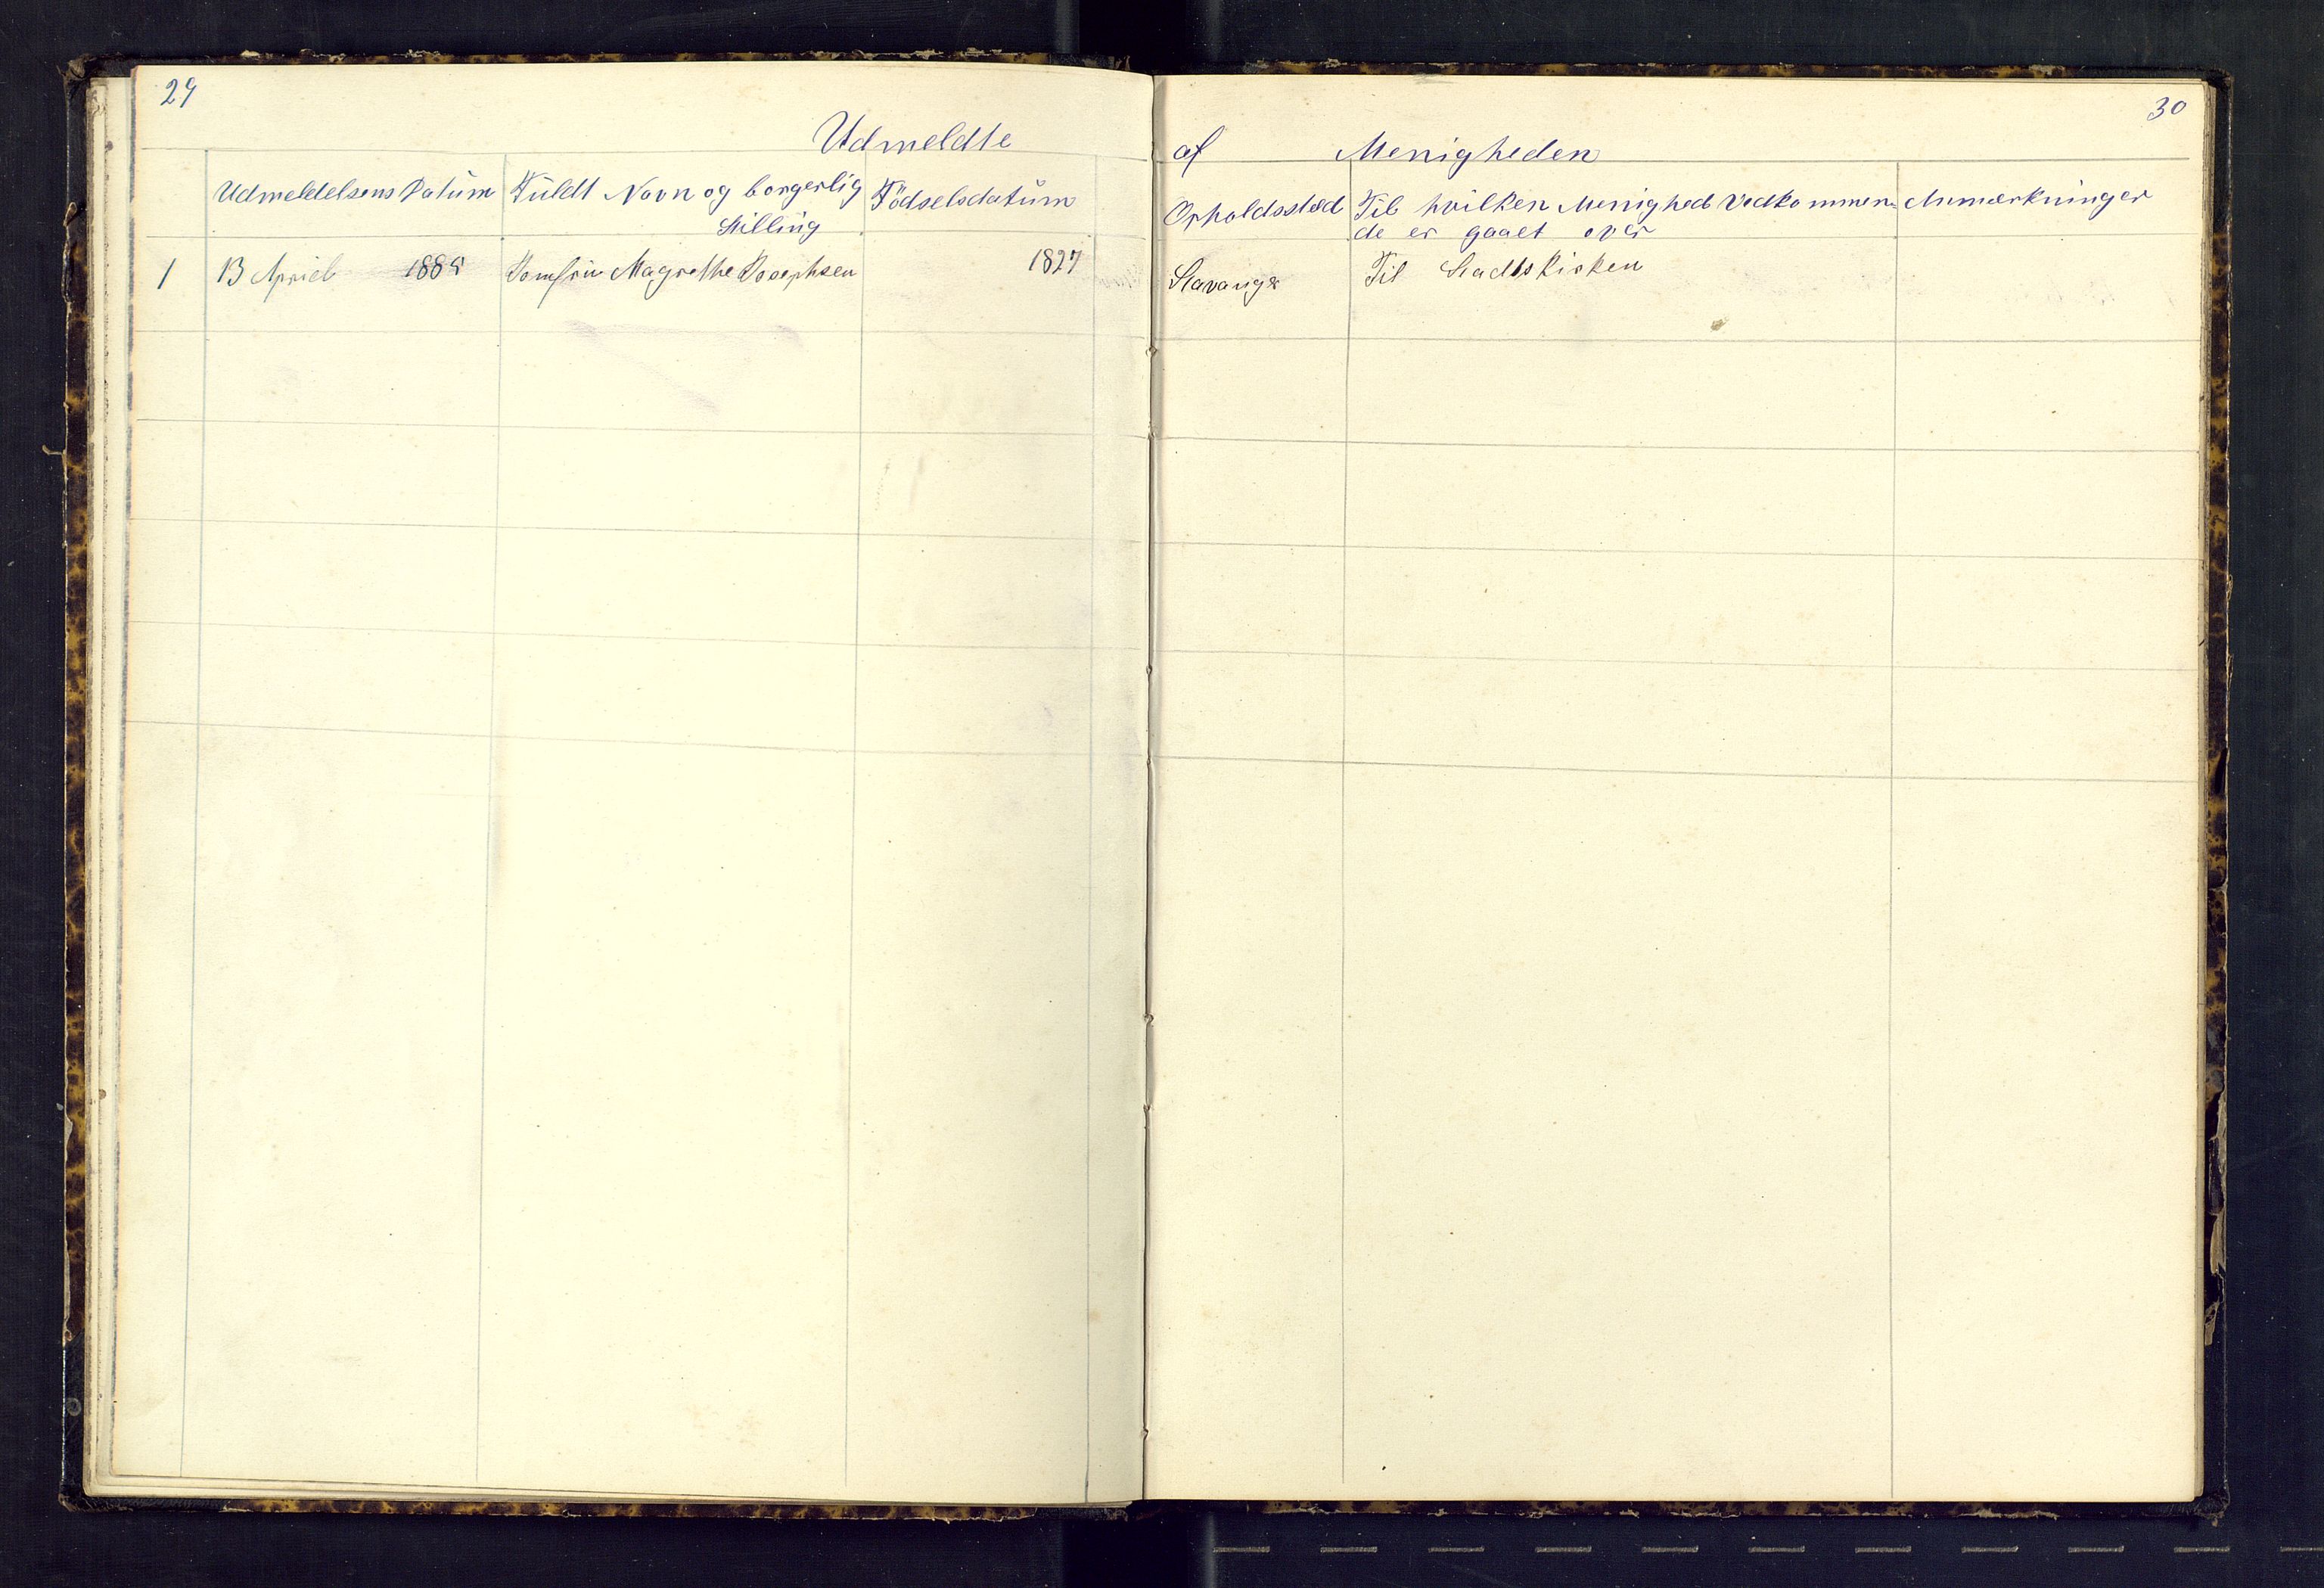 29
Udmeldte
Udmeldelsens Datum Fuldt Navn og borgerlig Stilling Födselsdatum
1 13 April 1885 Jomfru Magrethe Josephsen 1827
30
af Menigheden
Opholdssted Til hvilken Menighed Vedkommen- Anmærkninger
de er gaaet over
Stavanger Til Stadtskirken